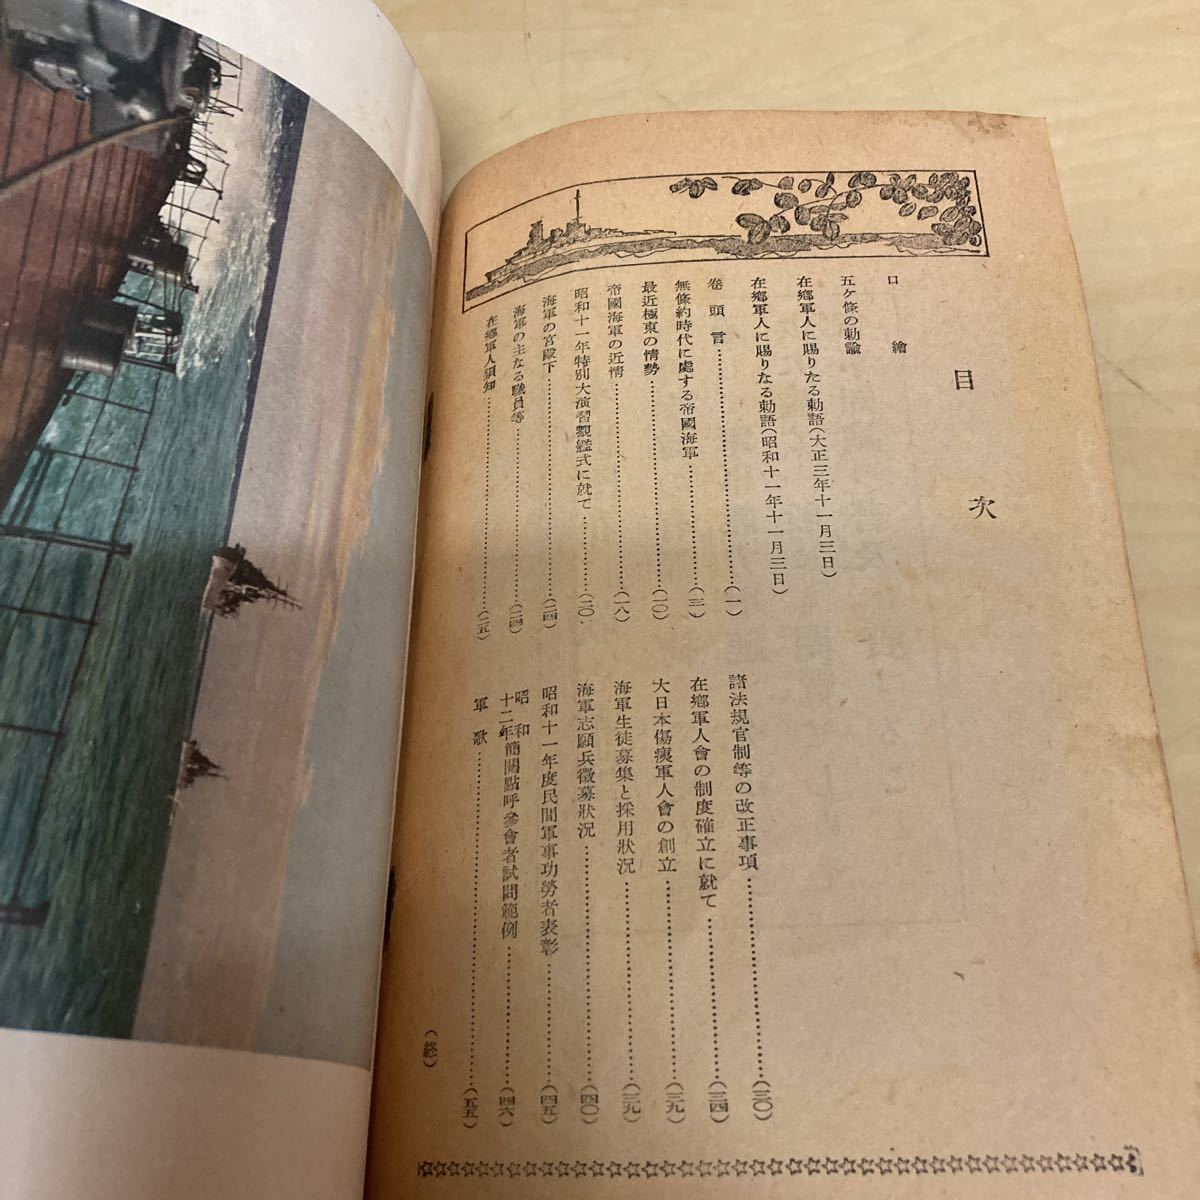 目次
口繪
五ケ條の勅諭
在鄕軍人に賜りたる勅語(大正三年十一月三日)
在鄕軍人に賜りなる勅語(昭和十一年十一月三日)
卷頭言……(一)
無條約時代に處する帝國海軍……(三)
最近極東の情勢……(一〇)
帝國海軍の近情……(一八)
昭和十一年特別大演習觀艦式に就て……(二〇)
海軍の宮殿下……(二四)
海軍の主なる職員等……(二四)
在鄕軍人須知……(二五)
諸法規官制等の改正事項……(三〇)
在鄕軍人會の制度確立に就て……(三四)
大日本傷痍軍人會の創立……(三九)
海軍生徒募集と採用狀況……(三九)
海軍志願兵徵募狀況……(四〇)
昭和十一年度民間軍事功勞者表彰……(四五)
昭和十二年簡閱點呼參會者試問範例……(四六)
軍歌……(五五)
(終)